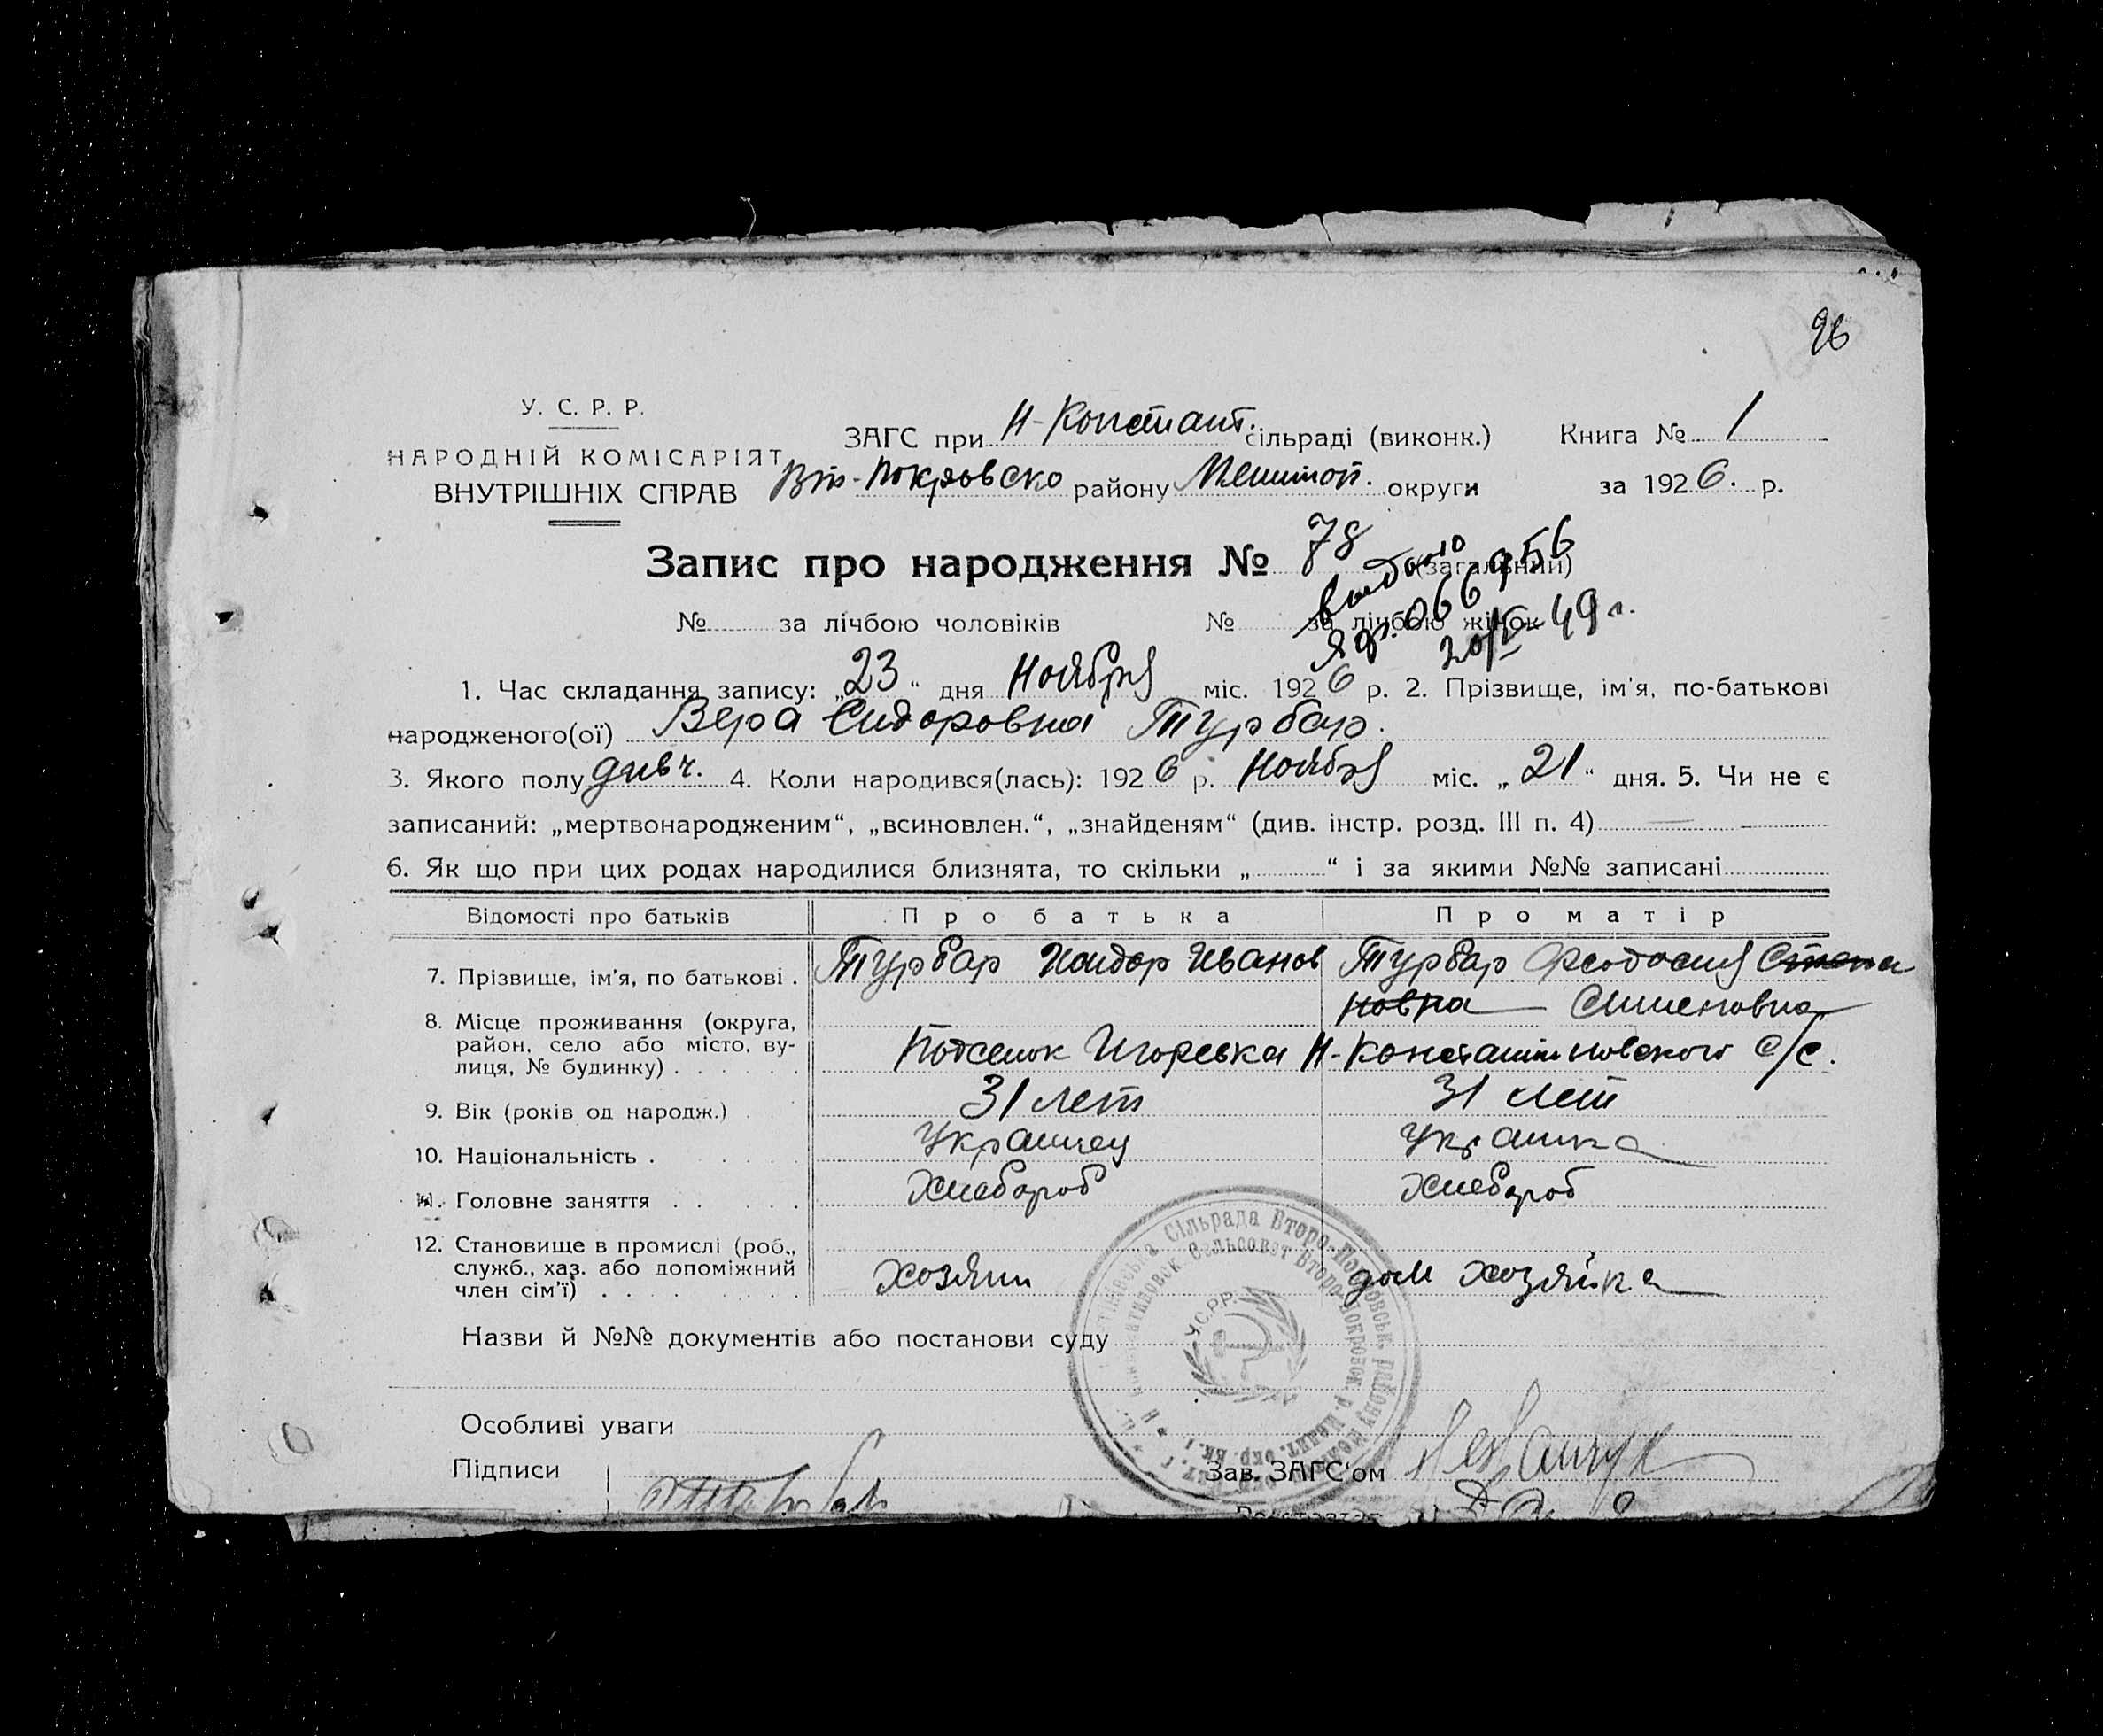 96
У. С. Р. Р.
НАРОДНІЙ КОМІСАРІЯТ
ВНУТРІШНІХ СПРАВ
ЗАГС при Н-Констант. сільраді (виконк.) Книга № 1
Вт-Покровско району Мелитоп. округи за 1926. р.
Запис про народження № 78 (загальний)
№ за лічбою чоловіків № за лічбою жінок
выдано
066956
20/V-49 г.
1. Час складання запису: „23“ дня Ноября міс. 1926 р. 2. Прізвище, ім'я, по-батькові
народженого(ої) Вера Сидоровна Турбар.
3. Якого полу дивч. 4. Коли народився(лась): 1926 р. Ноября міс. „21“ дня. 5. Чи не є
записаний: „мертвонародженим“, „всиновлен.“, „знайденям“ (див. інстр. розд. III п. 4)
6. Як що при цих родах народилися близнята, то скільки „ “ і за якими №№ записані
Відомості про батьків Про батька Про матір
7. Прізвище, ім'я, по батькові . Турбар Исидор Иванов Турбар Феодосия Степа
новна Сименовна
8. Місце проживання (округа,
район, село або місто, ву-
лиця, № будинку) . . . . . . Подселок Игоревка Н-Константиновского с/с.
9. Вік (років од народж.) 31 лет 31 лет
10. Національність . Украинец Украинка
11. Головне заняття . . Хлебороб Хлебороб
12. Становище в промислі (роб.,
служб., хаз. або допоміжний
член сім'ї) . . . . Хозяин дом хозяйка
Назви й №№ документів або постанови суду
Сільрада Второ-Покровськ. району
Сельсовет Второ-Покровск. р. Мелит. окр.
У.С.Р.Р.
Особливі уваги
Підписи Зав. ЗАГС'ом